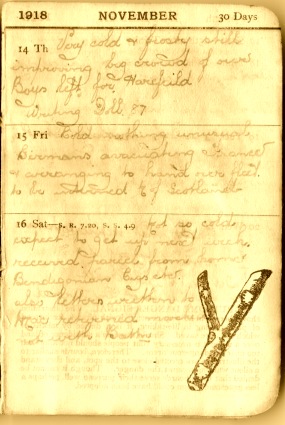 1918 NOVEMBER 30 Days
14 Th Very cold & frosty still
improving big crowd of our
Boys left for Harefield
Writing Doll. 27
15 Fri Cold nothing unusual
Germans evacuating France
& arranging to hand over fleet
to be interned E of Scotland
16 Sat—S. R. 7.20, S. S. 4.9 Not so cold
expect to get up next week
received Parcel from home
Bendigonian Eugs etc.
also letters written to
returned
not with Battn